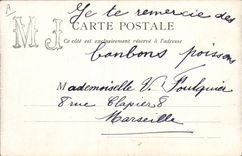 A
Je te remercie des
M J
CARTE POSTALE
Ce côté est exclusivement réservé à l'adresse
bonbons poissons
Mademoiselle V. Foulquier
8 rue Clapier 8
Marseille